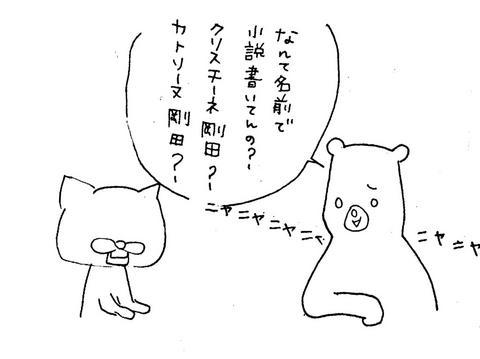 なんて名前で
小説書いてんの？
クリスチーネ剛田？
カトリーヌ剛田？
ニヤニヤニヤニヤ
ニヤニヤ